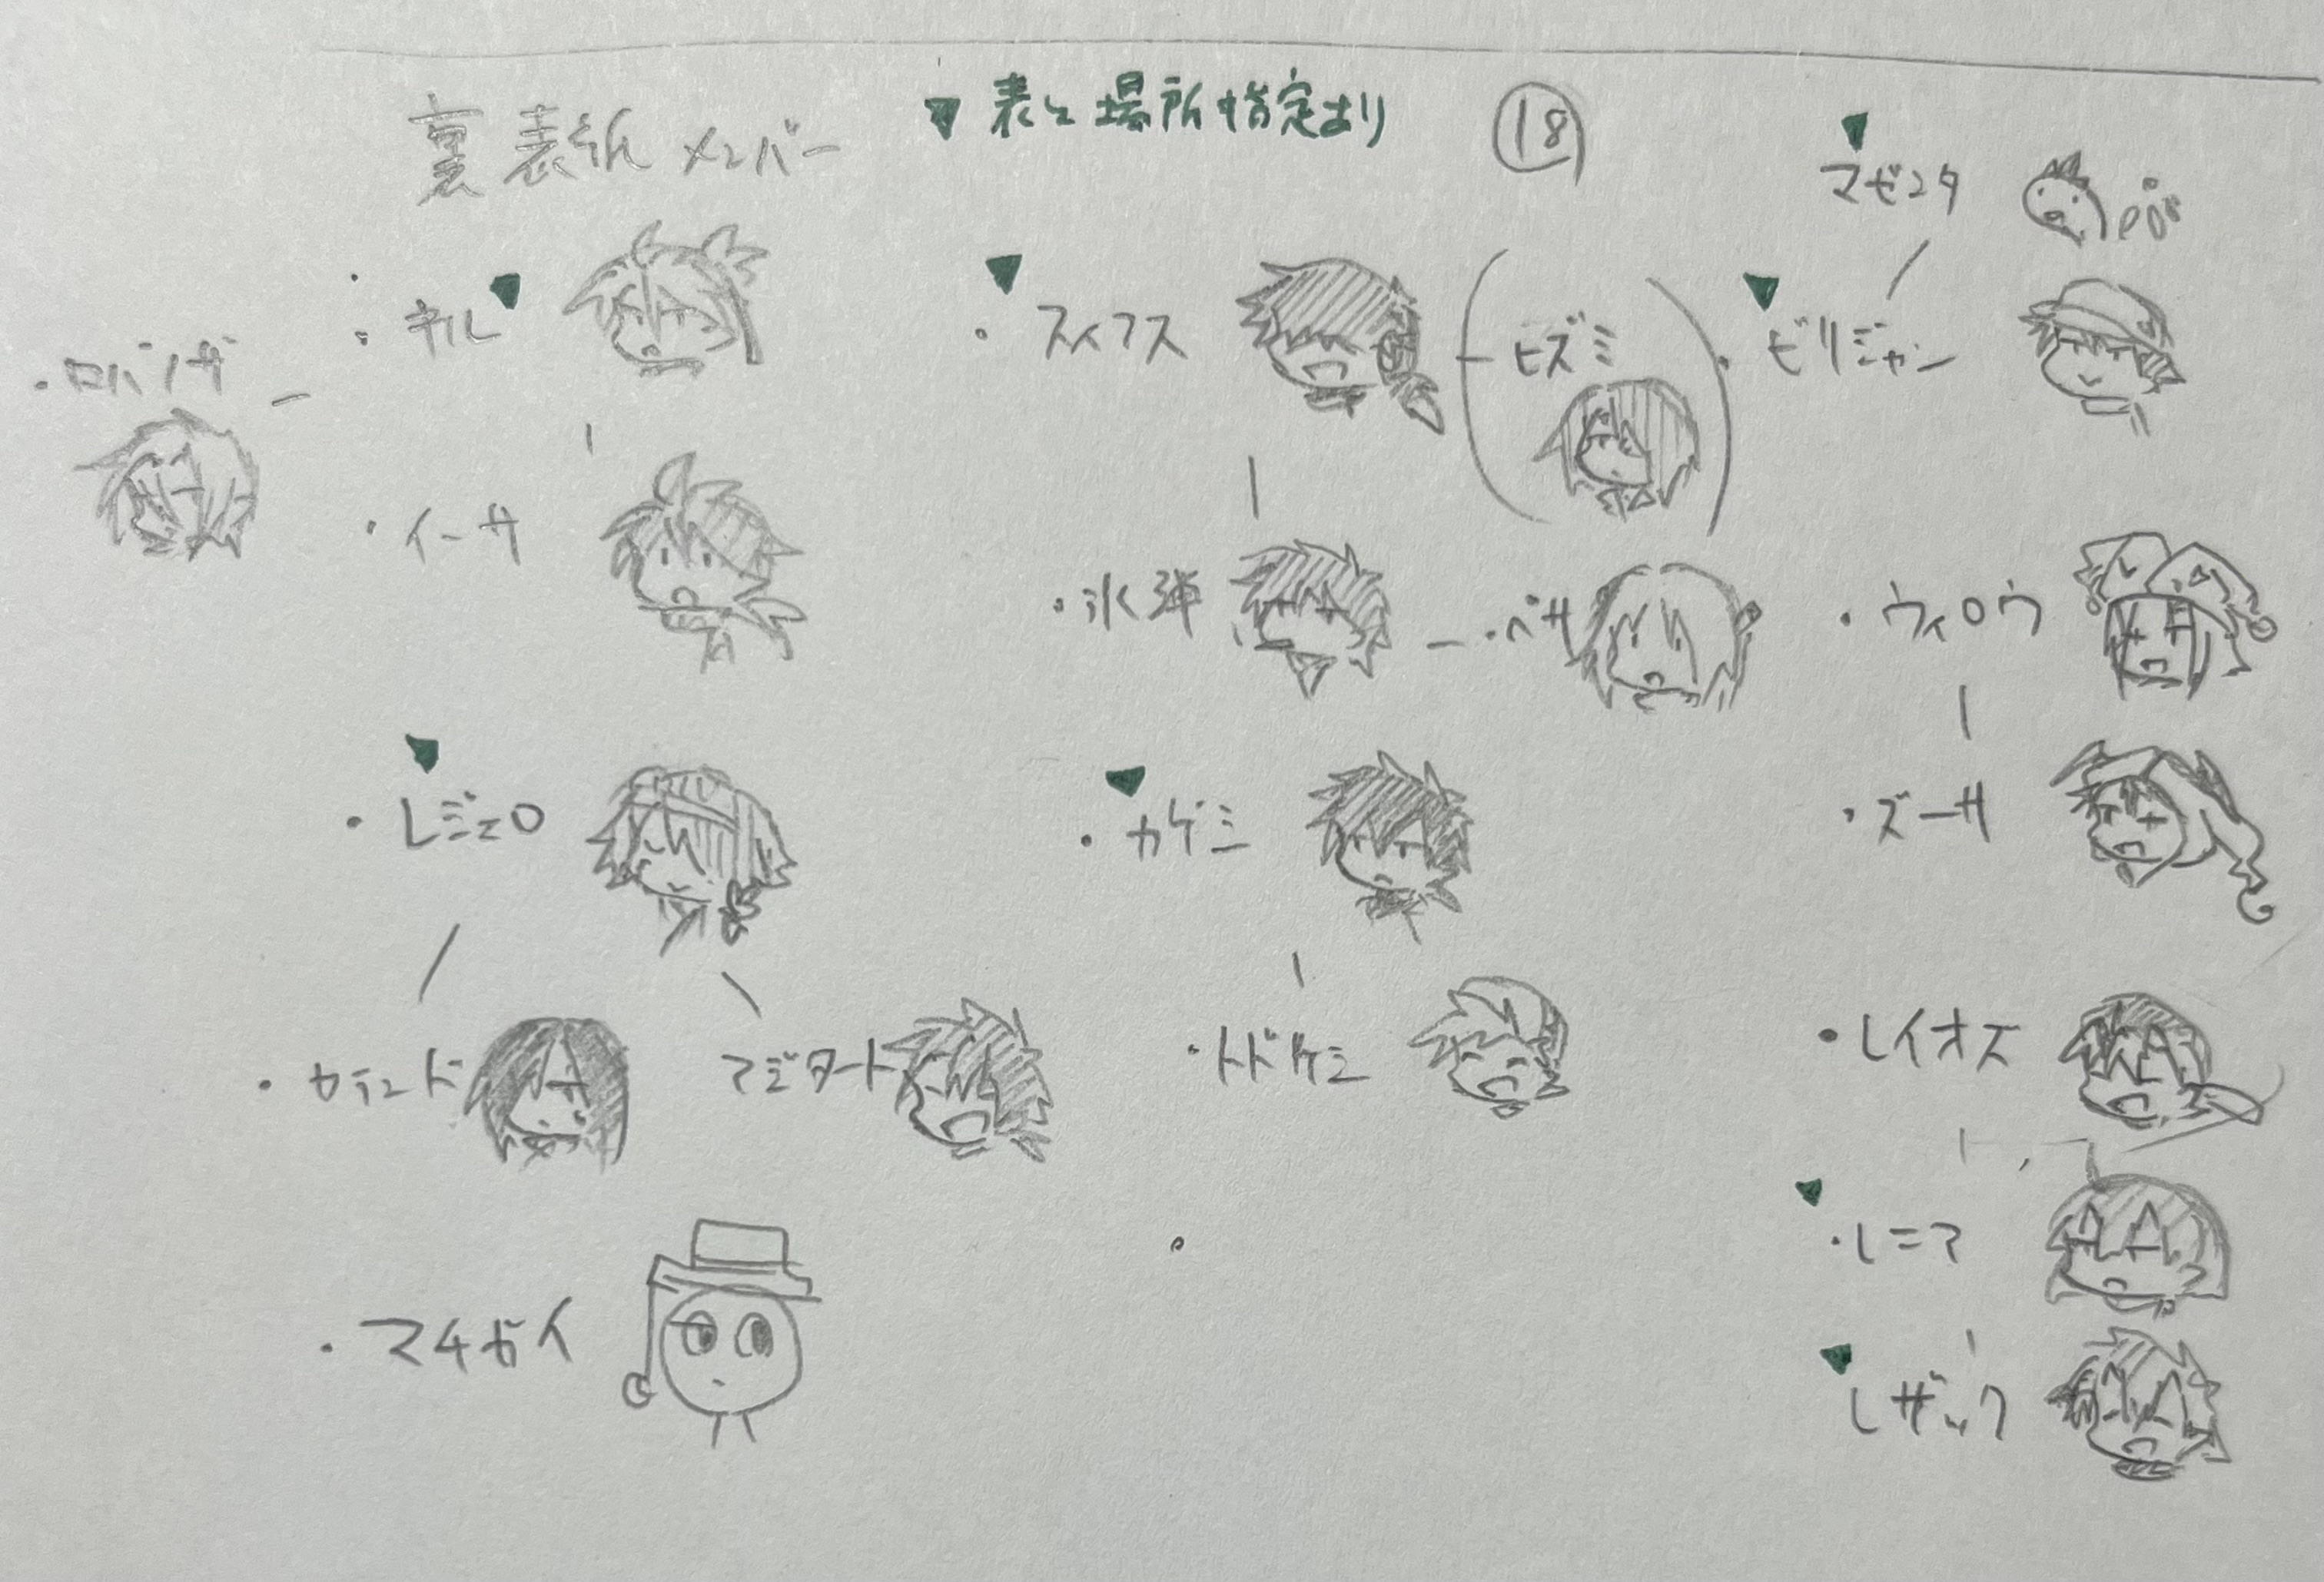 裏表紙 メンバー
▼ 表と場所指定あり
⑱
マゼンタ
・キル
・スイフス
ヒズミ
・ビリジャン
・ロバノザ
・イーサ
・氷弾
・ベサ
・ウィロウ
・レジェロ
・カゲミ
・ズーサ
・カデュード
マジタート
・トドケミ
・レイオス
・レニア
・マチガイ
レザック